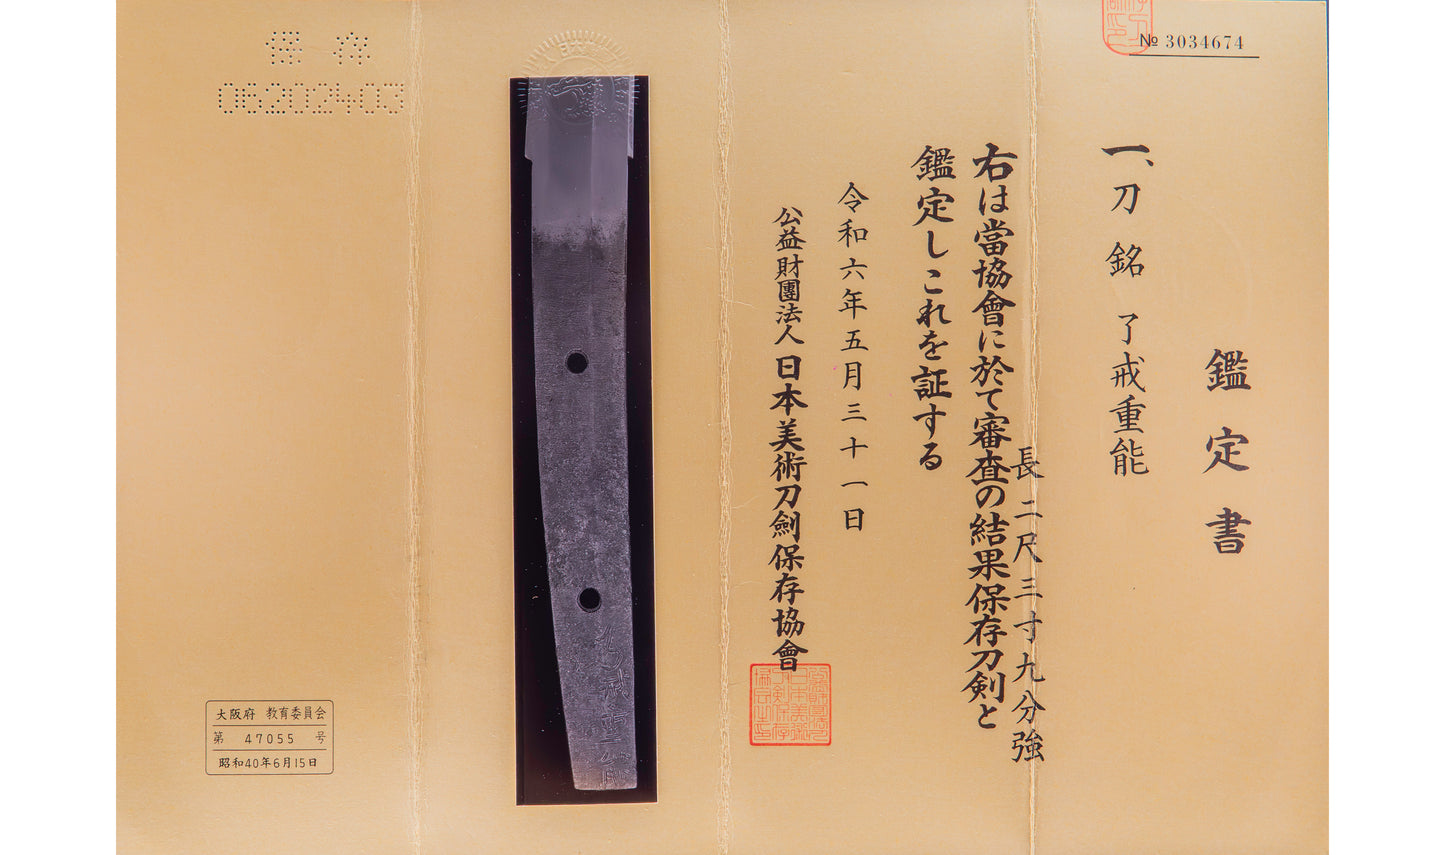 № 3034674
鑑定書
一、刀 銘 了戒重能
長二尺三寸九分強
右は當協會に於て審査の結果保存刀剣と
鑑定しこれを証する
令和六年五月三十一日
公益財團法人日本美術刀劍保存協會
保存
06202403
大阪府 教育委員会
第 47055 号
昭和40年6月15日